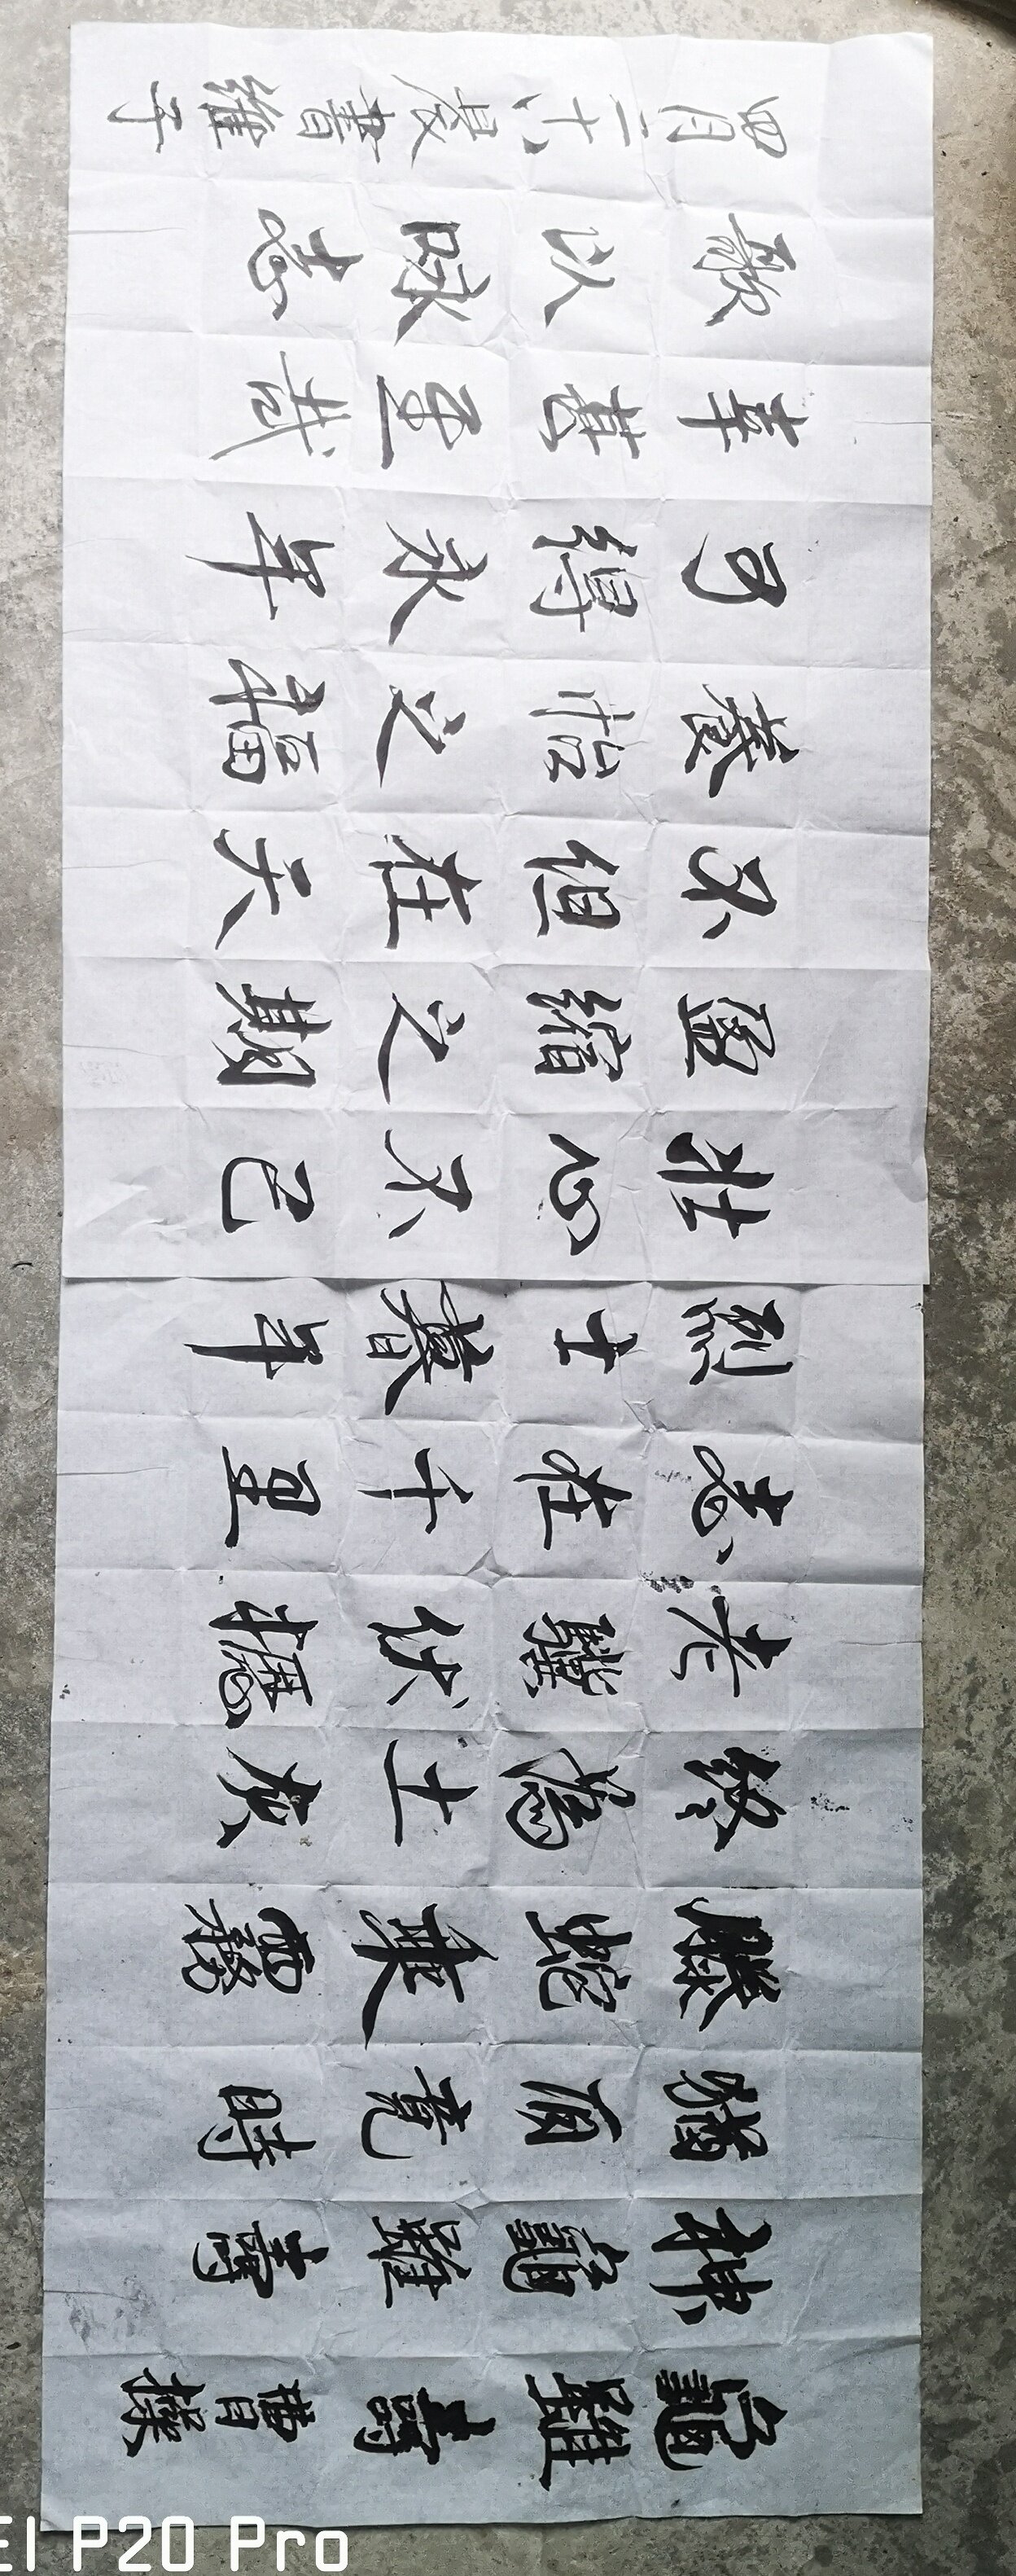 龜雖壽曹操
神龜雖壽
猶有竟時
騰蛇乘霧
終為土灰
老驥伏櫪
志在千里
烈士暮年
壯心不已
盈縮之期
不但在天
養怡之福
可得永年
幸甚至哉
歌以咏志
四月二十晨書維
EI P20 Pro